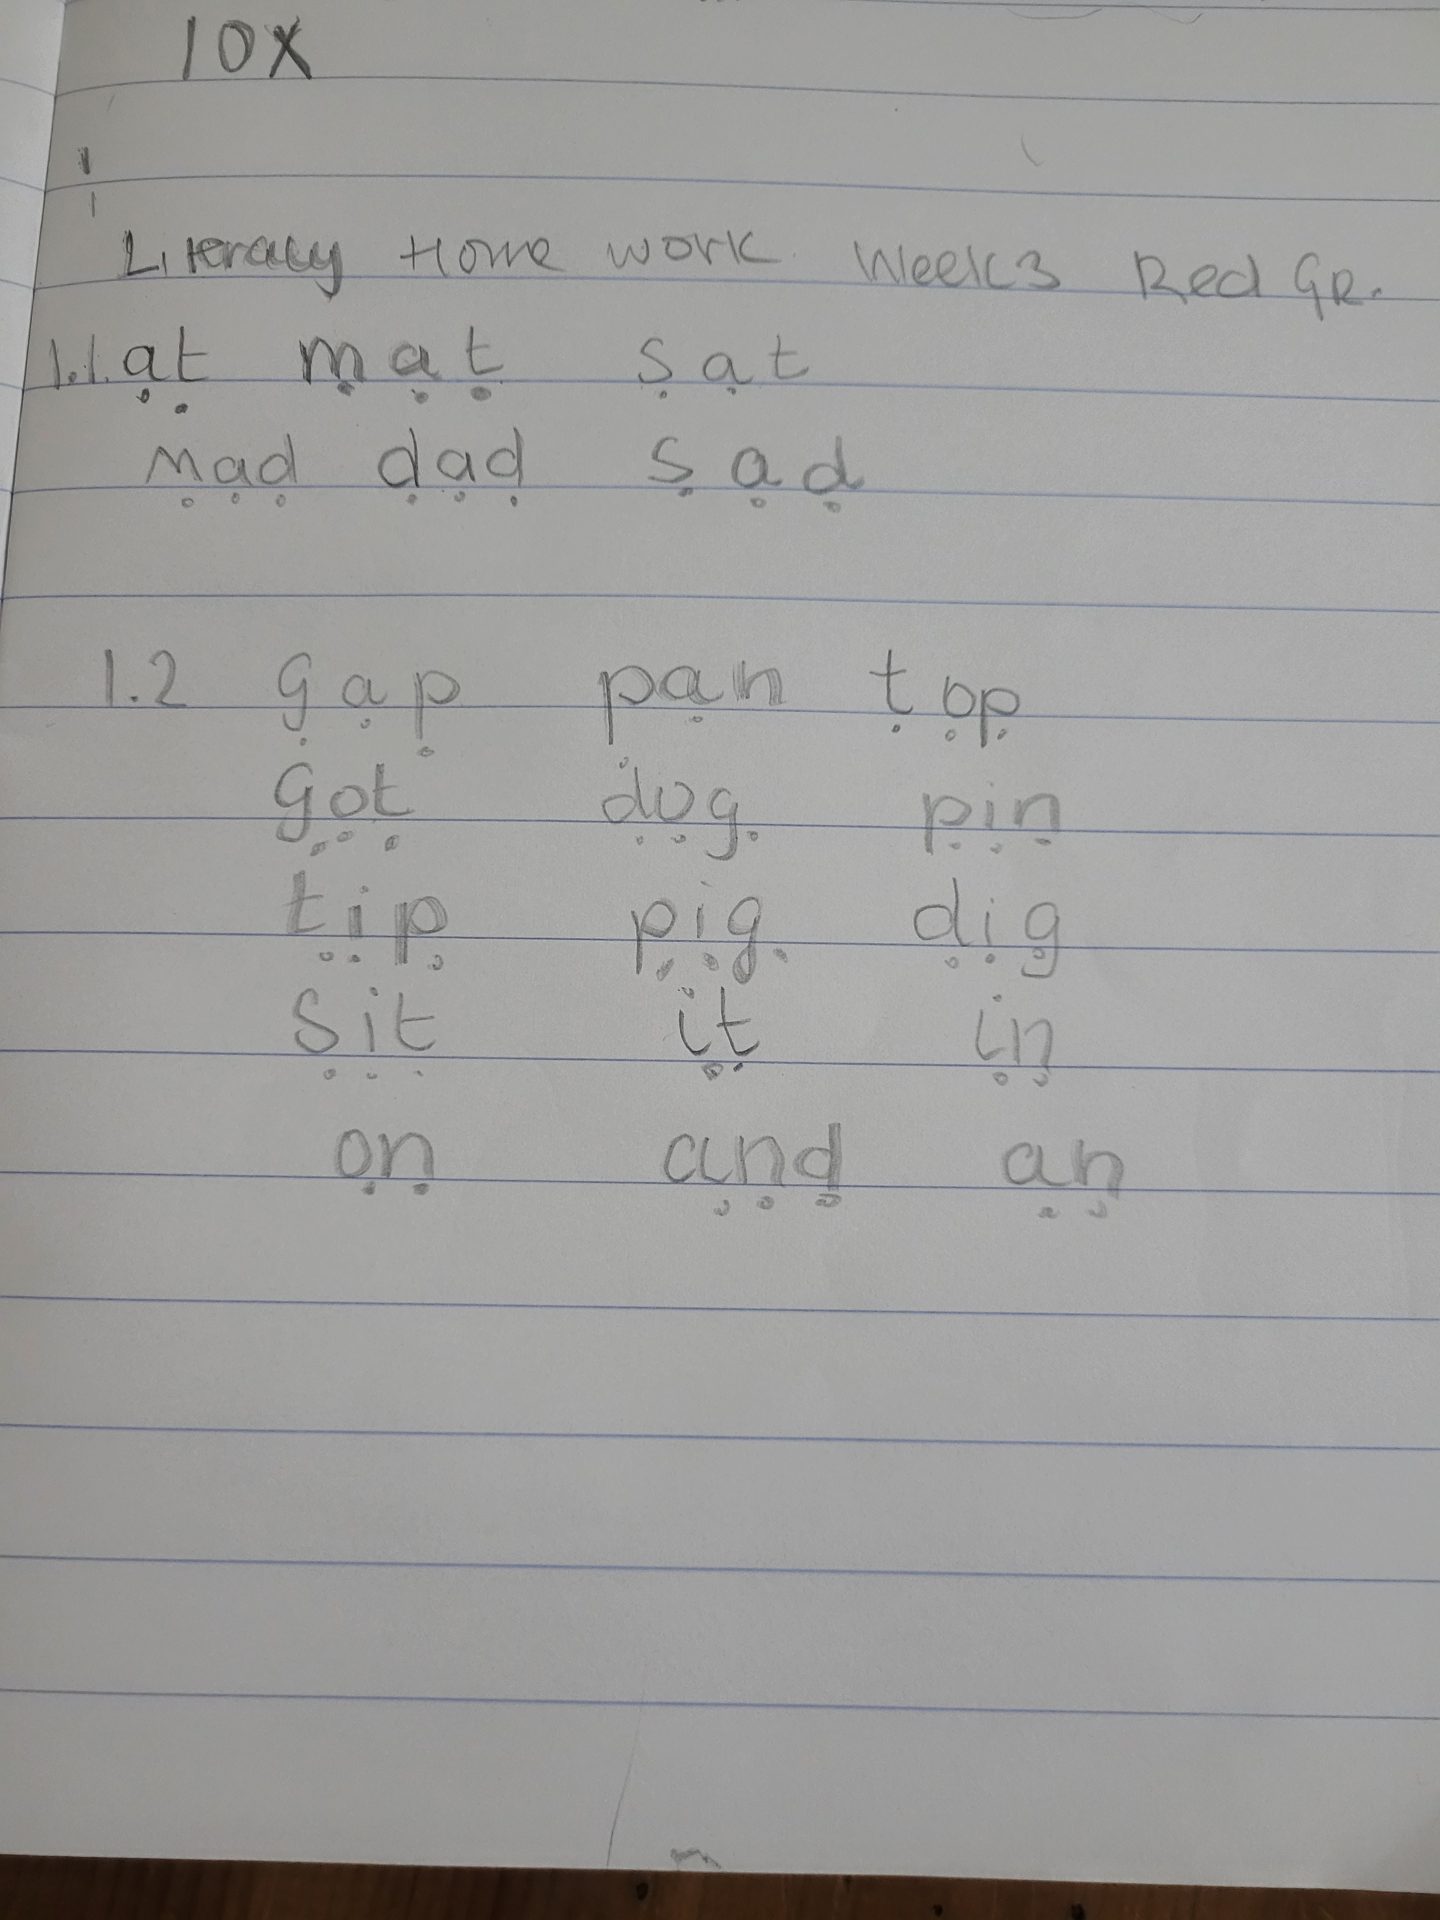 10X
Literacy Home work Week3 Red GR.
1.1. at mat sat
mad dad sad
1.2 gap pan top
Got dog pin
tip pig dig
sit it in
on and an